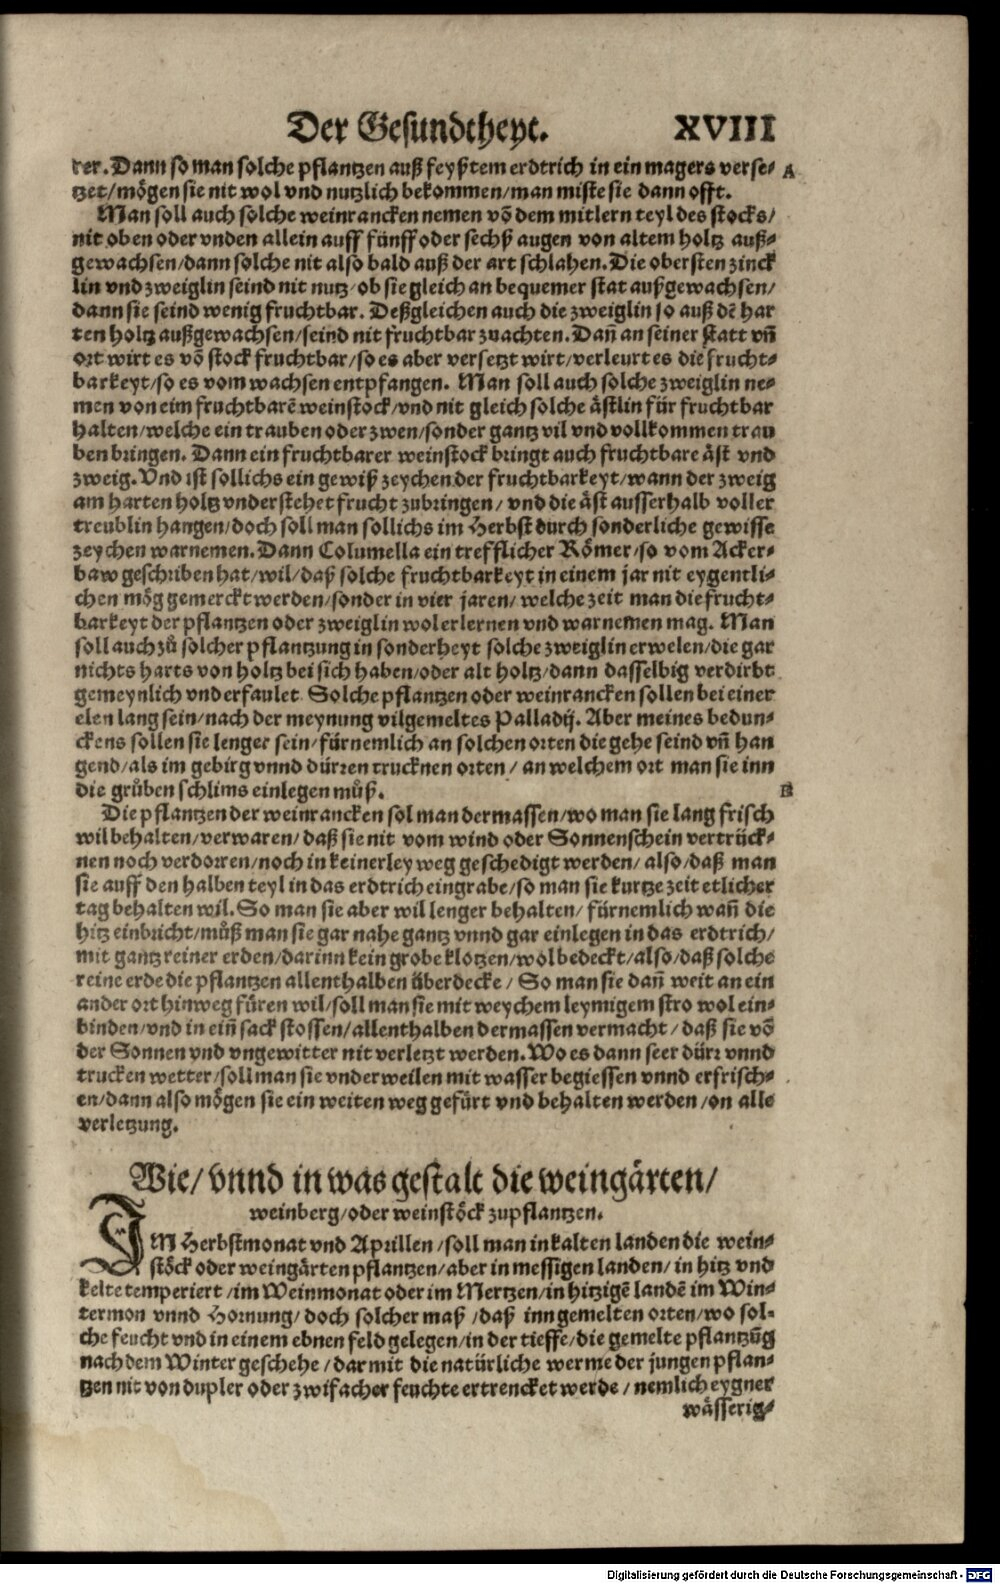 Der Gesundtheyt. XVIII
rer. Dann so man solche pflantzen auß feyßtem erdtrich in ein magers verse- A
tzet/mögen sie nit wol vnd nutzlich bekommen/man miste sie dann offt.
Man soll auch solche weinrancken nemen võ dem mitlern teyl des stocks/
nit oben oder vnden allein auff fünff oder sechß augen von altem holtz auß-
gewachsen/dann solche nit also bald auß der art schlahen. Die obersten zinck
lin vnd zweiglin seind nit nutz/ob sie gleich an bequemer stat außgewachsen/
dann sie seind wenig fruchtbar. Deßgleichen auch die zweiglin so auß dẽ har
ten holtz außgewachsen/seind nit fruchtbar zuachten. Dañ an seiner statt vñ
ort wirt es võ stock fruchtbar/so es aber versetzt wirt/verleurt es die frucht-
barkeyt/so es vom wachsen entpfangen. Man soll auch solche zweiglin ne-
men von eim fruchtbarẽ weinstock/vnd nit gleich solche ästlin für fruchtbar
halten/welche ein trauben oder zwen/sonder gantz vil vnd vollkommen trau
ben bringen. Dann ein fruchtbarer weinstock bringt auch fruchtbare äst vnd
zweig. Vnd ist sollichs ein gewiß zeychen der fruchtbarkeyt/wann der zweig
am harten holtz vnderstehet frucht zubringen/ vnd die äst ausserhalb voller
treublin hangen/doch soll man sollichs im Herbst durch sonderliche gewisse
zeychen warnemen. Dann Columella ein trefflicher Römer/so vom Acker-
baw geschriben hat/wil/daß solche fruchtbarkeyt in einem jar nit eygentli-
chen mög gemerckt werden/sonder in vier jaren/ welche zeit man die frucht-
barkeyt der pflantzen oder zweiglin wol erlernen vnd warnemen mag. Man
soll auch zů solcher pflantzung in sonderheyt solche zweiglin erwelen/die gar
nichts harts von holtz bei sich haben/oder alt holtz/dann dasselbig verdirbt
gemeynlich vnd erfaulet. Solche pflantzen oder weinrancken sollen bei einer
elen lang sein/nach der meynung vilgemeltes Palladij. Aber meines bedun-
ckens sollen sie lenger sein/fürnemlich an solchen orten die gehe seind vñ han
gend/als im gebirg vnnd dürren trucknen orten/ an welchem ort man sie inn
die grůben schlims einlegen můß. B
Die pflantzen der weinrancken sol man dermassen/wo man sie lang frisch
wil behalten/verwaren/ daß sie nit vom wind oder Sonnenschein vertrück-
nen noch verdorren/noch in keinerley weg geschedigt werden/ also/daß man
sie auff den halben teyl in das erdtrich eingrabe/so man sie kurtze zeit etlicher
tag behalten wil. So man sie aber wil lenger behalten/ fürnemlich wañ die
hitz einbricht/můß man sie gar nahe gantz vnnd gar einlegen in das erdtrich/
mit gantz reiner erden/darinn kein grobe klotzen/wol bedeckt/also/daß solche
reine erde die pflantzen allenthalben überdecke/ So man sie dañ weit an ein
ander ort hinweg füren wil/soll man sie mit weychem leymigem stro wol ein-
binden/vnd in eiñ sack stossen/allenthalben dermassen vermacht/daß sie võ
der Sonnen vnd vngewitter nit verletzt werden. Wo es dann seer dürr vnnd
trucken wetter/soll man sie vnderweilen mit wasser begiessen vnnd erfrisch-
en/dann also mögen sie ein weiten weg gefürt vnd behalten werden/on alle
verletzung.
Wie/ vnnd in was gestalt die weingärten/
weinberg/oder weinstöck zupflantzen.
IM Herbstmonat vnd Aprillen/soll man in kalten landen die wein-
stöck oder weingärten pflantzen/aber in messigen landen/ in hitz vnd
kelte temperiert/im Weinmonat oder im Mertzen/in hitzigẽ landẽ im Win-
termon vnnd Hornung/ doch solcher maß/daß inn gemelten orten/wo sol-
che feucht vnd in einem ebnen feld gelegen/in der tieffe/die gemelte pflantzũg
nach dem Winter geschehe/darmit die natürliche werme der jungen pflan-
tzen nit von dupler oder zwifacher feuchte ertrencket werde/ nemlich eygner
wässerig-
Digitalisierung gefördert durch die Deutsche Forschungsgemeinschaft - DFG